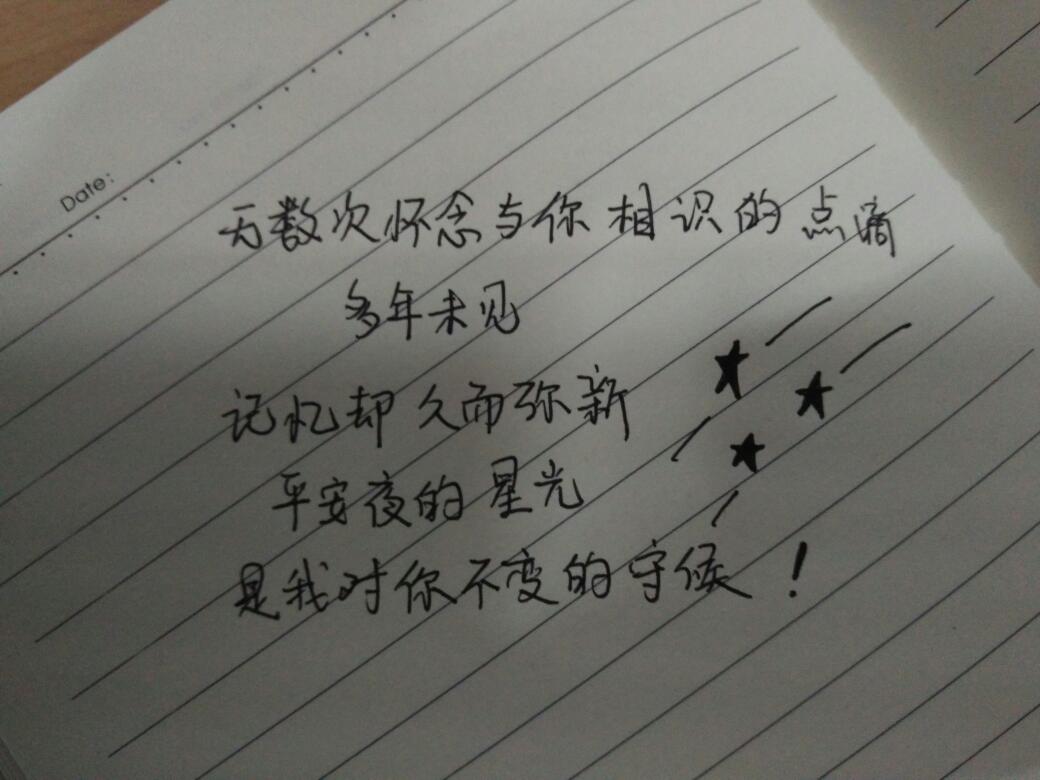 Date:
无数次怀念与你相识的点滴
多年未见
记忆却久而弥新
平安夜的星光
是我对你不变的守候！